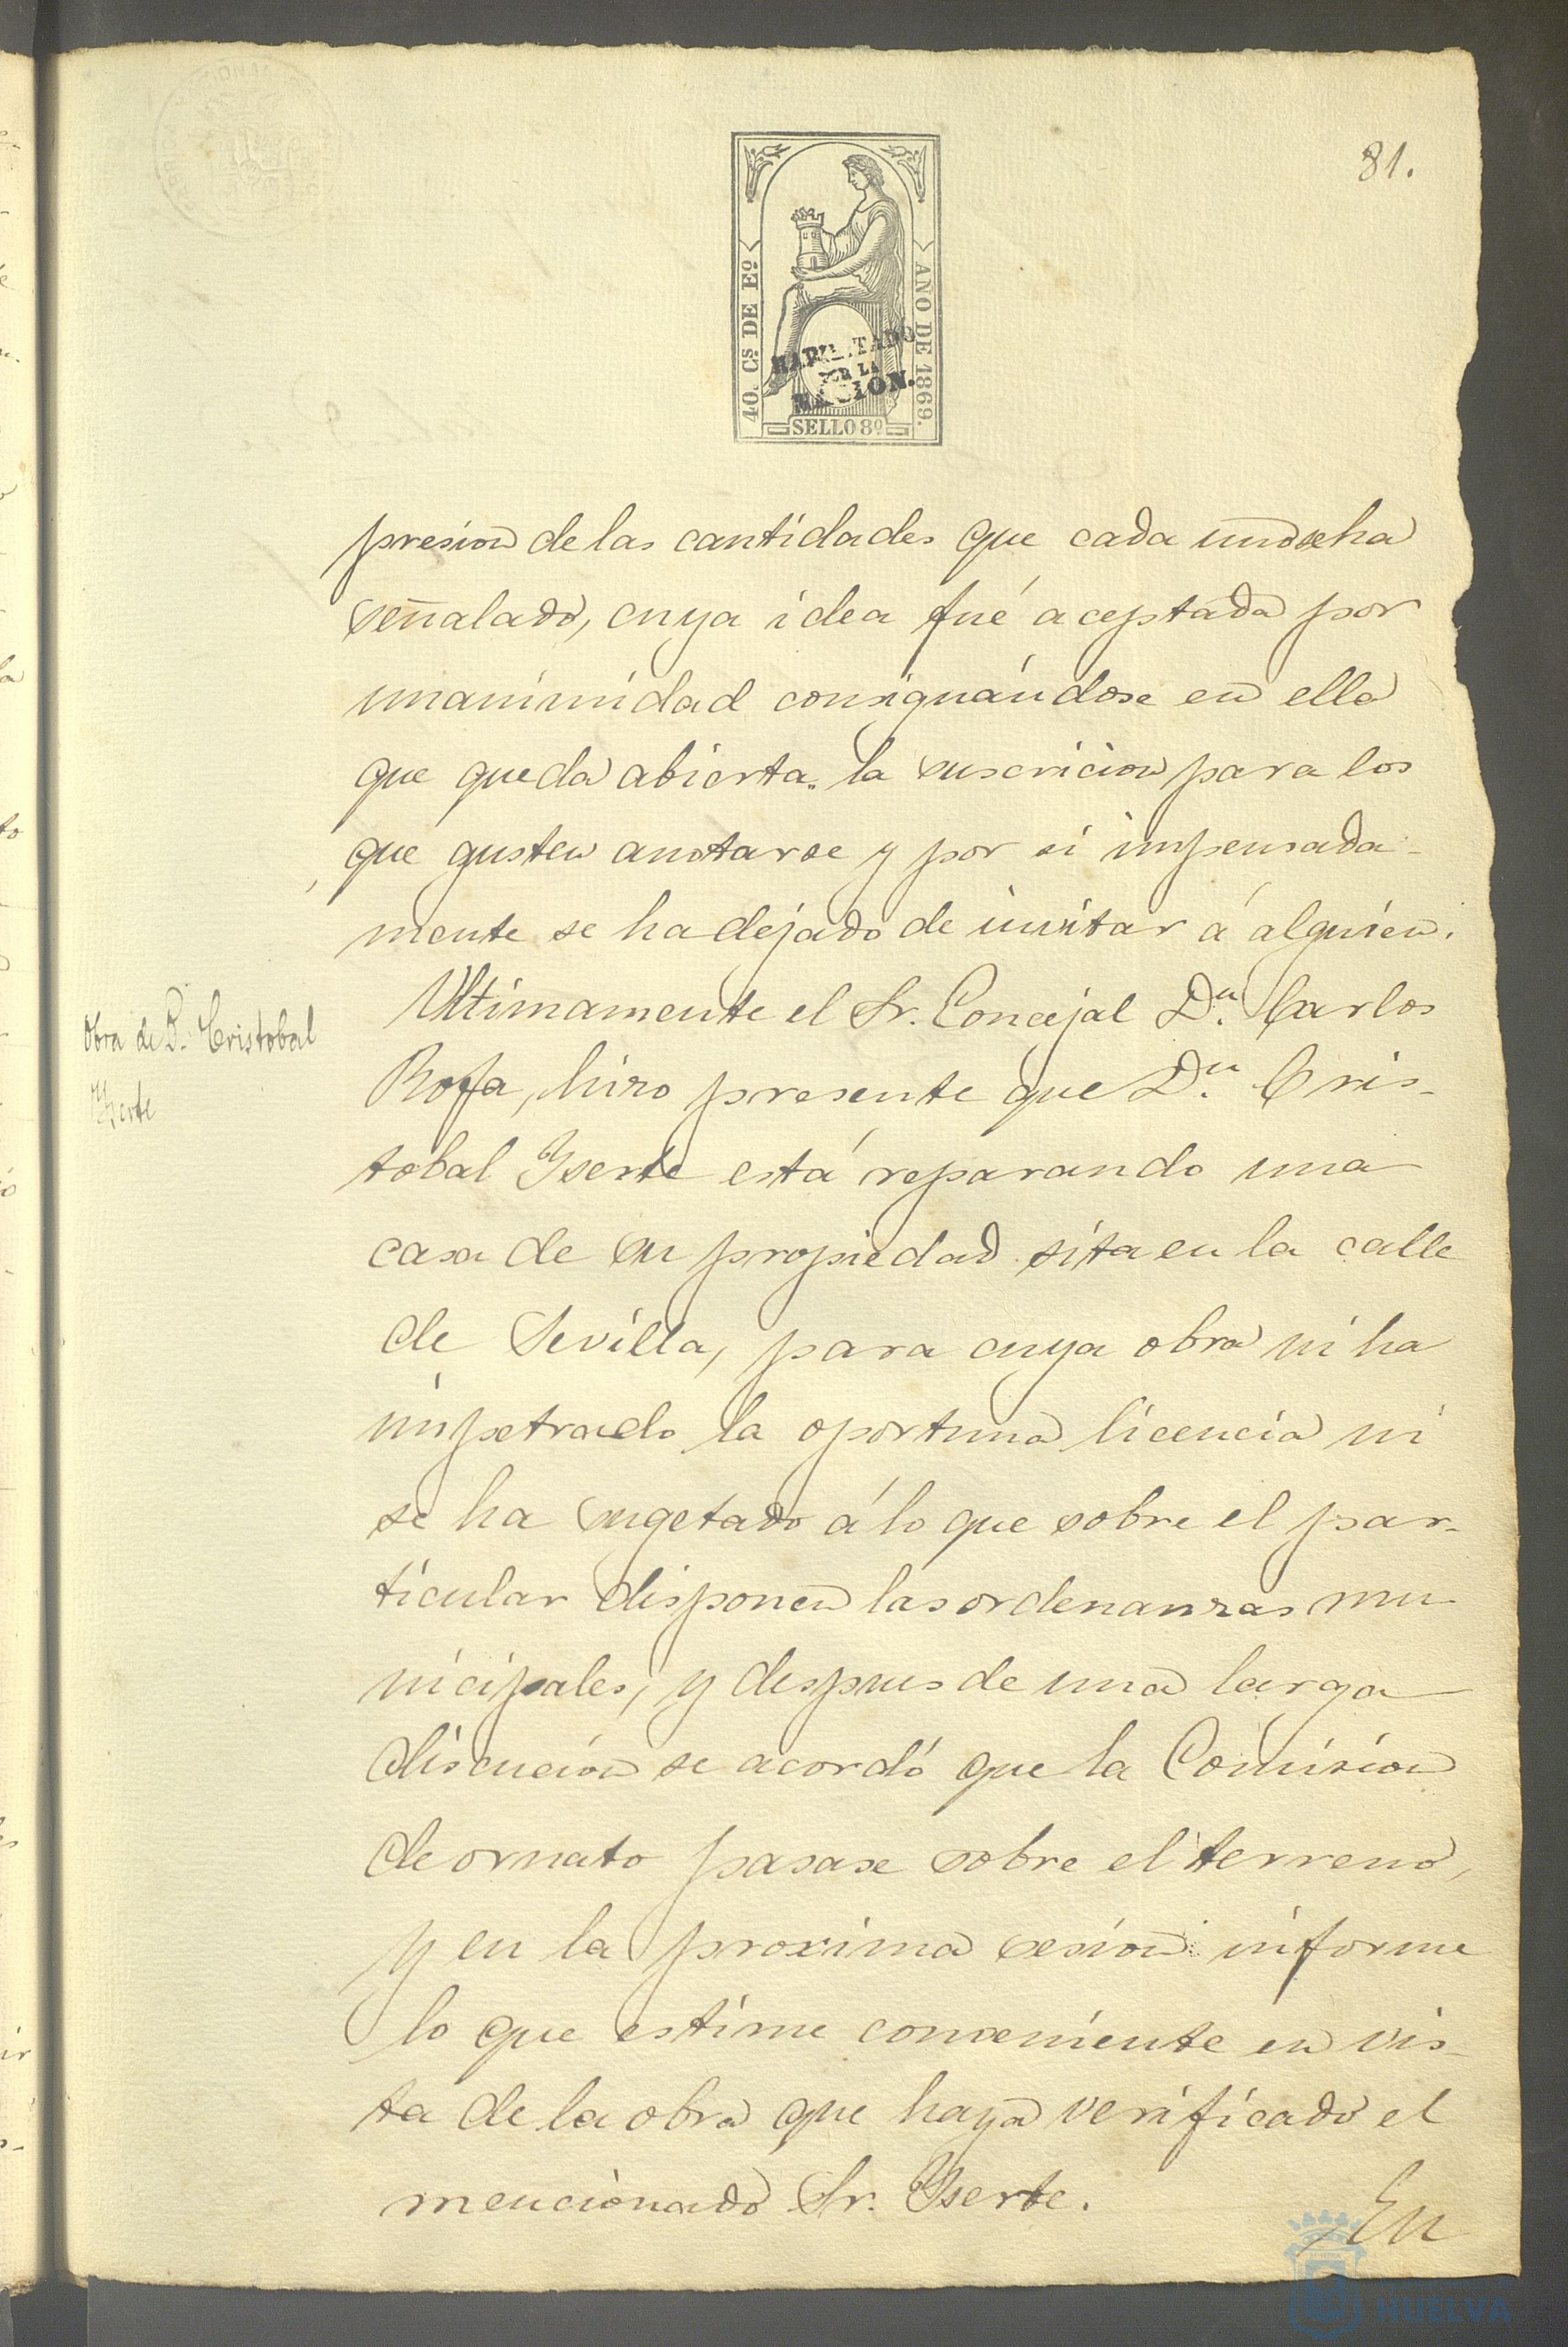 81.
40. Cs. DE Eº.
AÑO DE 1869.
HABILITADO
POR LA
NACION.
SELLO 8º
presion de las cantidades que cada uno se ha
señalado, cuya idea fué aceptada por
unanimidad consignándose en ella
que queda abierta la suscricion para los
que gusten anotarse y por si impensada-
mente se ha dejado de invitar á alguien.
Obra de D. Cristobal
Yserte
Ultimamente el Sr. Concejal Dn. Carlos
Rofa, hizo presente que Dn. Cris-
tobal Yserte está reparando una
casa de su propiedad sita en la calle
de Sevilla, para cuya obra ni ha
impetrado la oportuna licencia ni
se ha sugetado á lo que sobre el par-
ticular disponen las ordenanzas mu-
nicipales, y despues de una larga
discucion se acordó que la Comision
de ornato pasase sobre el terreno,
y en la proxima sesion informe
lo que estime conveniente en vis-
ta de la obra que haya verificado el
mencionado Sr. Yserte.
En
HUELVA